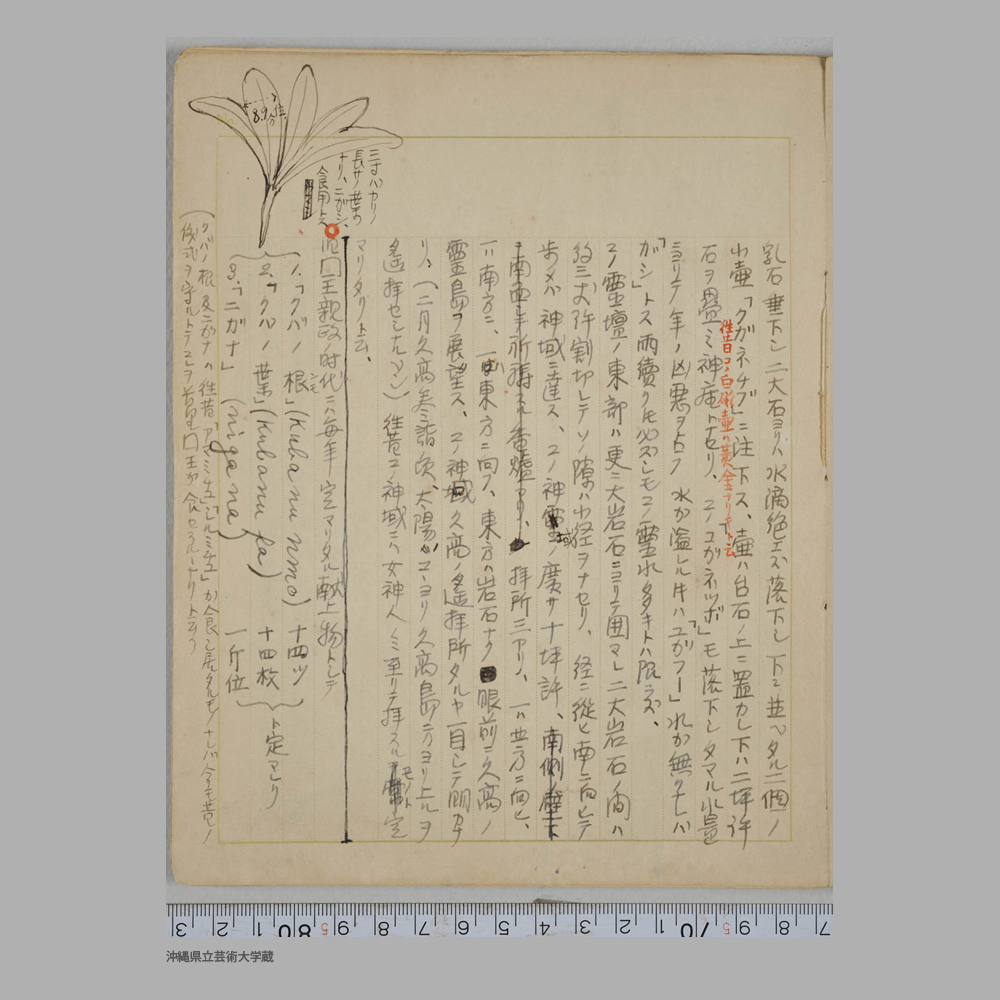 乳石垂下シ二大石ヨリハ水滴絶エズ落下シ下ニ並ベタル二個ノ
小壷「クガネチブ」ニ注下ス、壷ハ台石ノ上ニ置カレ下ハ二坪許
往昔コノ白磁壷ハ黄金ナリキト云
石ヲ畳ミ神座トセリ、コノコガネツボモ落下シタマル水量
ニヨリテ年ノ凶悪ヲ占フ 水ガ溢レル年ハ「ユガフー」水ガ無クナレバ
「ガシ」トス雨続クモ必ズシモコノ霊水多キトハ限ラズ、
コノ霊壇ノ東部ハ更ニ大岩石ニヨリテ囲マレ二大岩石ノ間ハ
約三尺許割切レテソノ隙ハ小径ヲナセリ、径ニ従ヒ南ニ向ヒテ
歩メバ神域ニ達ス、コノ神域ノ廣サ十坪許、
拝所三アリ、一ハ西方ニ向ヒ、
一ハ南方ニ、一ハ東方ニ向フ、東方ハ岩石ナク眼前ニ久高ノ
霊島ヲ展望ス、コノ神域久高ノ遙拝所タルヤ一目シテ明カナ
リ、(二月久高参詣ノ頃、太陽ガココヨリ久高島ノ方ヨリ上ルヲ
遙拝セシナルベシ) 往昔コノ神域ニハ女神人ノミ至リテ拝スルモノト定
マリタリト云、
三寸バカリノ
長サノ葉ノ
トリ、ニガシ、
食用トス
8.9分位
旧□王親政ノ時代ニハ毎年定マリタル献上物トシテ
1.「クバノ根」(Kubanu nmo) 十四ツ
2.「クバノ葉」(Kubanu fa) 十四枚
3.「ニガナ」(nigana) 一斤位
ト定マレリ
(クバノ根及ニガナハ往昔「アマミチュ」「シルミチュ」ガ食シ居タルモノナレバ今モ昔ノ
儀式ヲ守ルトテコレヲ